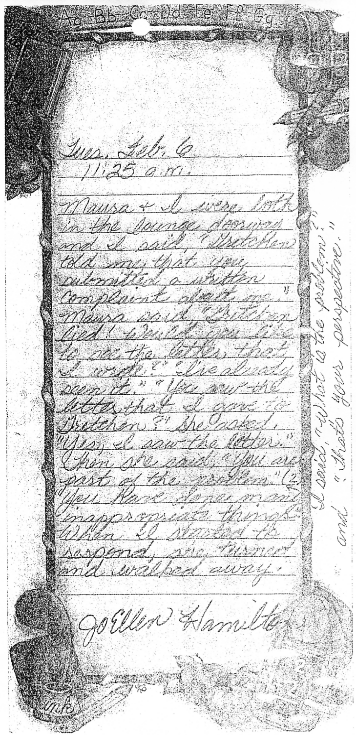 Aa Bb Cc Dd Ee Ff Gg
Tues. Feb. 6
11:25 a.m.
Maura & I were both
in the lounge doorway
and I said "Gretchen
told me that you
submitted a written
complaint about me."
Maura said "Gretchen
lied! Would you like
to see the letter that
I wrote?" "I've already
seen it." "You saw the
letter that I gave to
Gretchen?" she asked.
"Yes, I saw the letter."
Then she said, "You are
part of the problem"
"You have done many
inappropriate things"
When I started to
respond, she turned
and walked away.
JoEllen Hamilton
I said, "What is the problem?"
and "That's your perspective."
Ink